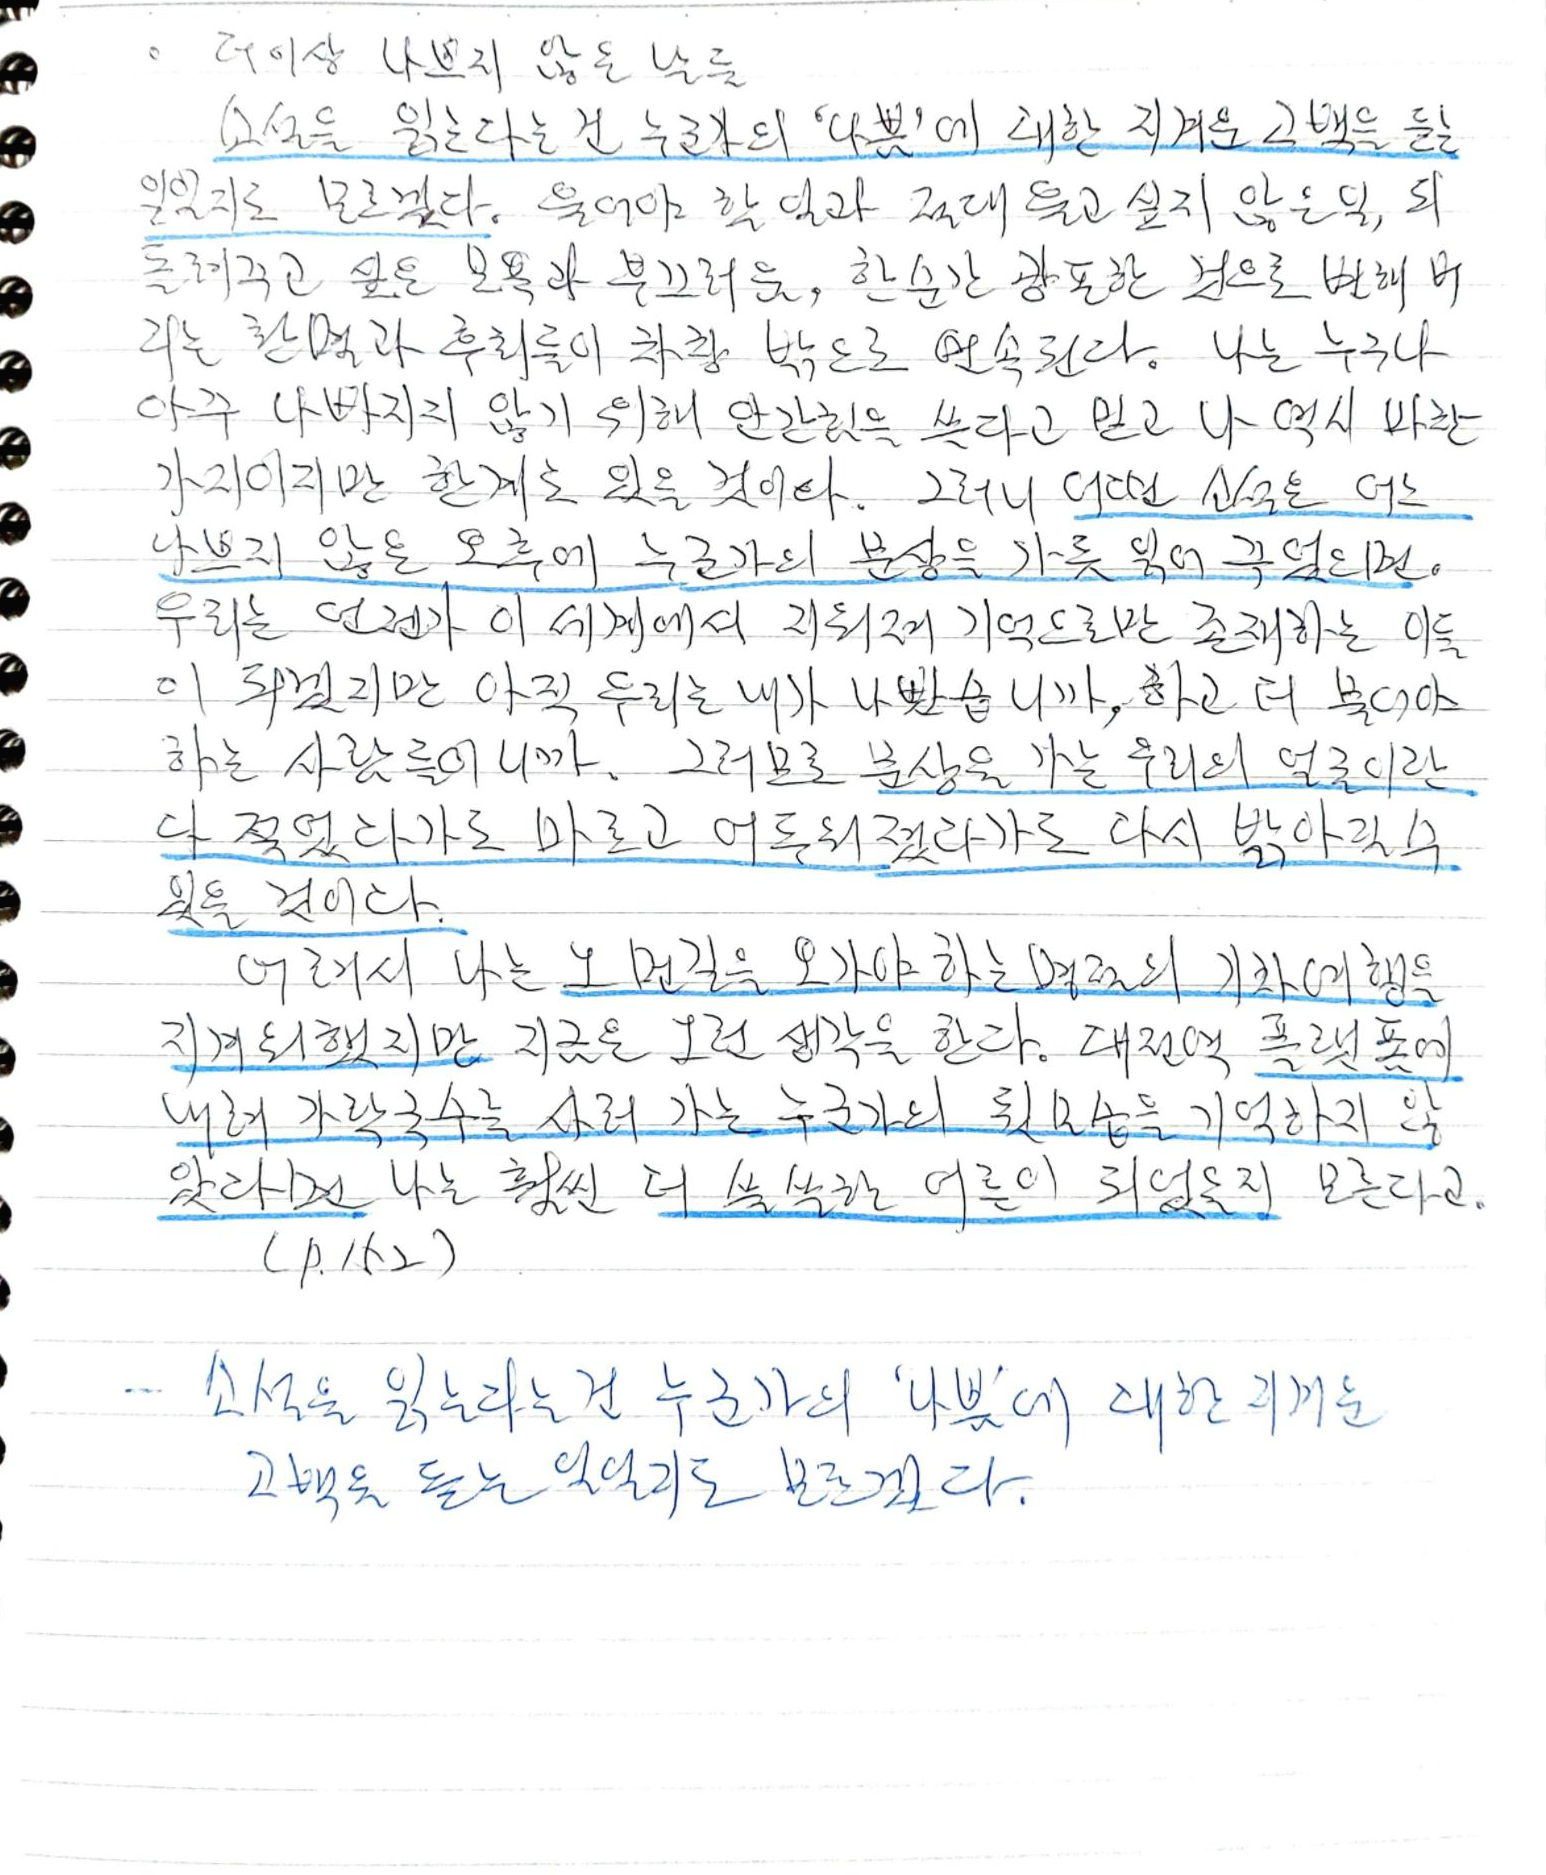 ◦ 더이상 나쁘지 않은 날들
소설을 읽는다는건 누군가의 '나쁨'에 대한 지겨운 고백을 듣는
일일지도 모르겠다. 들어야 할 일과 절대 듣고 싶지 않은 일, 되
돌려주고 싶은 모욕과 부끄러움, 한순간 광포한 것으로 변해 버
리는 환멸과 후회들이 차창 밖으로 연속된다. 나는 누구나
아주 나빠지지 않기 위해 안간힘을 쓴다고 믿고 나 역시 마찬
가지이지만 한계도 있을 것이다. 그러니 어떠면 소설은 어느
나쁘지 않은 오후에 누군가의 분상을 가릇 읽어 주었으면.
우리는 언젠가 이 세계에서 지워져 기억으로만 존재하는 이들
이 되겠지만 아직 우리는 내가 나빴습니까, 하고 더 물어야
하는 사람들이니까. 그러므로 분상을 가는 우리의 얼굴이란
다 젖었다가도 마르고 어두워졌다가도 다시 밝아질 수
있을 것이다.
어려서 나는 그 먼길을 오가야 하는 명절의 기차여행을
지겨워했지만 지금은 그런 생각을 한다. 대전역 플랫폼에
내려 가락국수를 사러 가는 누군가의 뒷모습을 기억하지 않
았다면 나는 훨씬 더 쓸쓸한 어른이 되었을지 모른다고.
(p.142)
-- 소설을 읽는다는건 누군가의 '나쁨'에 대한 지겨운
고백을 듣는 일일지도 모르겠다.